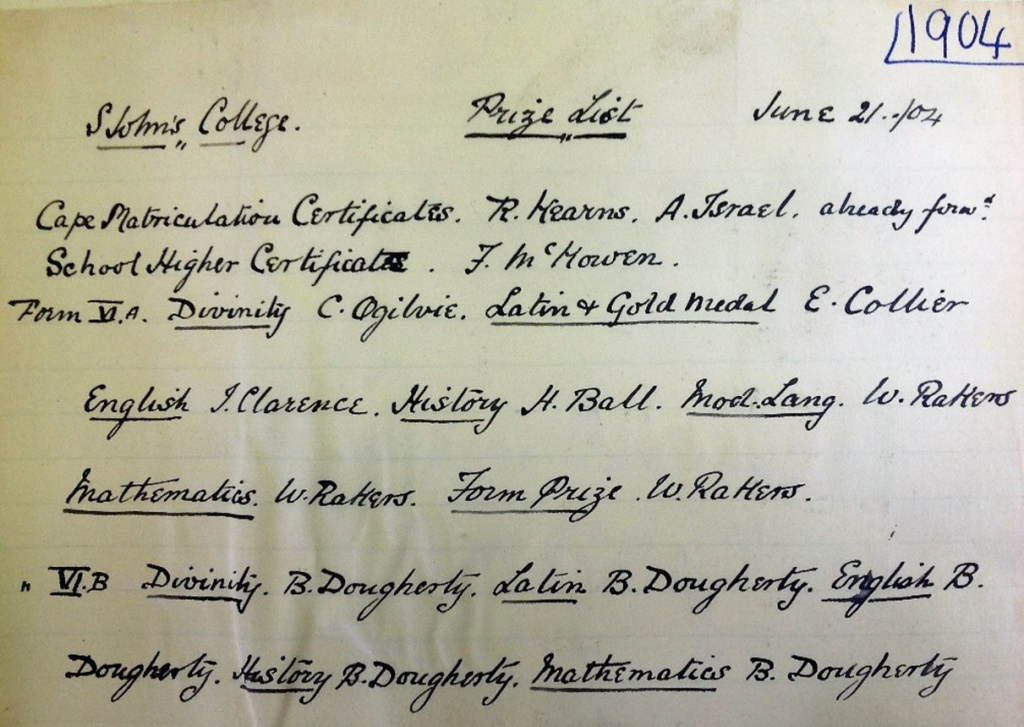 1904
S John's College. Prize List June 21./04
Cape Matriculation Certificates. R. Kearns. A. Israel. already
School Higher Certificate. F. McHowen.
Form VI.A. Divinity C. Ogilvie. Latin & Gold Medal E. Collier
English I. Clarence. History H. Ball. Mod. Lang. W. Rakers
Mathematics. W. Rakers. Form Prize. W. Rakers.
" VI.B Divinity. B. Dougherty. Latin B. Dougherty. English B.
Dougherty. History B. Dougherty. Mathematics B. Dougherty